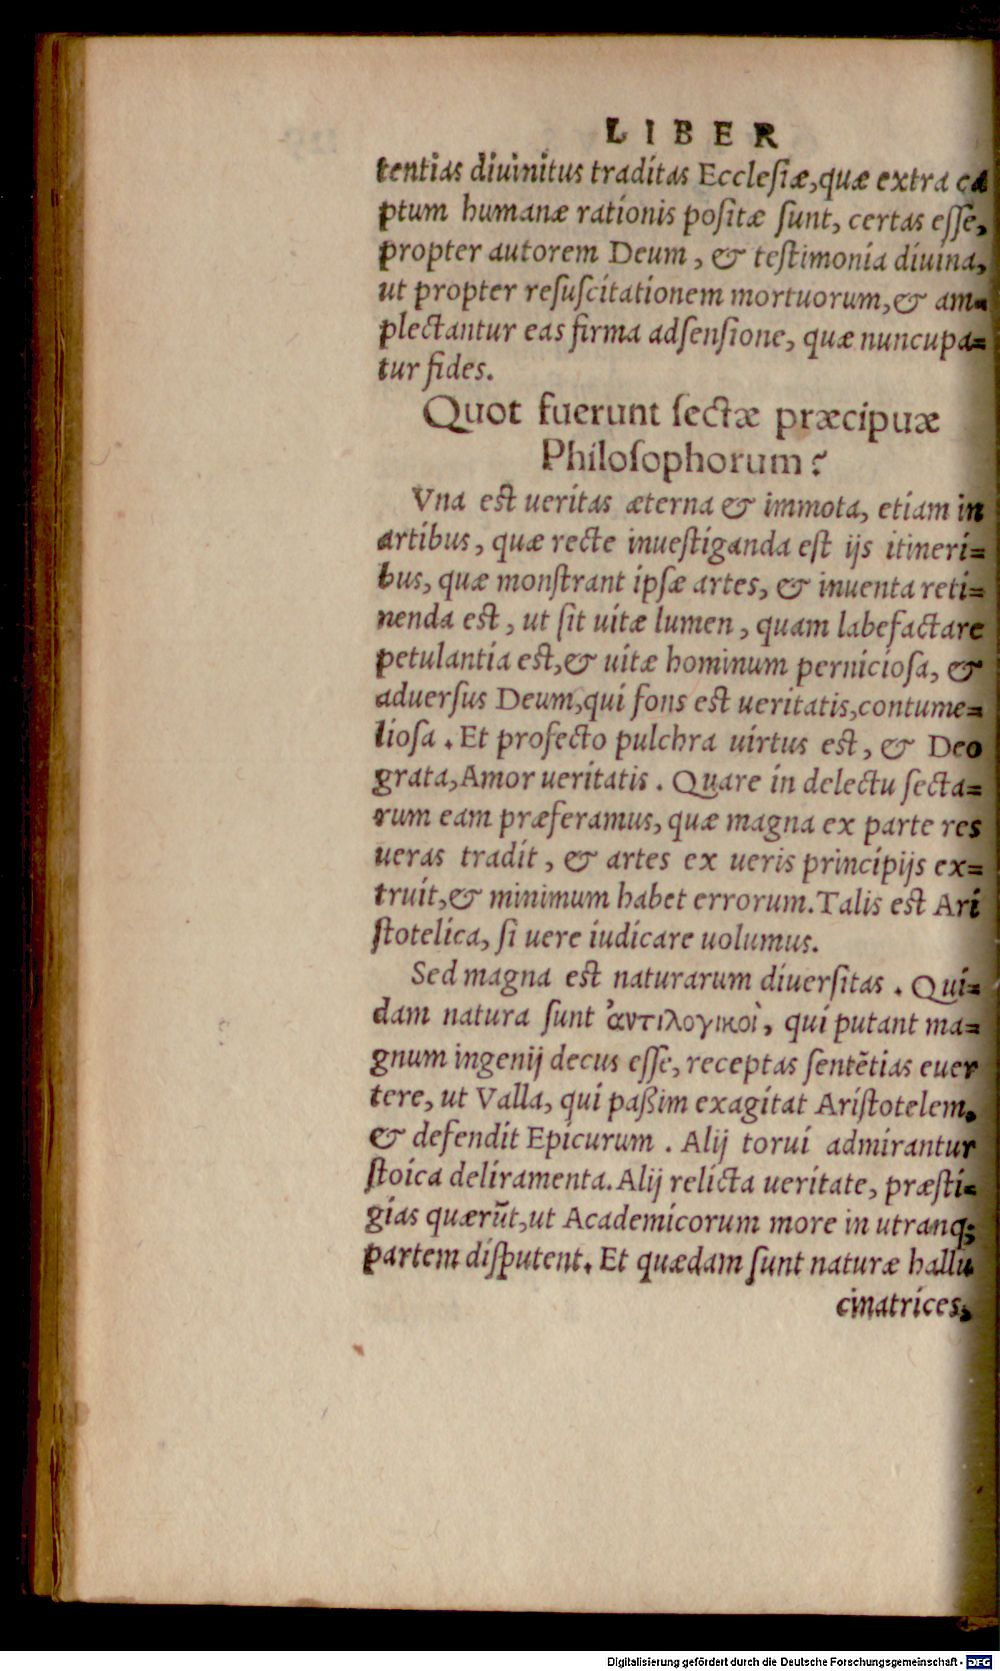 LIBER
tentias diuinitus traditas Ecclesiæ, quæ extra ca
ptum humanæ rationis positæ sunt, certas esse,
propter autorem Deum, & testimonia diuina,
ut propter resuscitationem mortuorum, & am=
plectantur eas firma adsensione, quæ nuncupa=
tur fides.
Quot fuerunt sectæ præcipuæ
Philosophorum?
Vna est ueritas æterna & immota, etiam in
artibus, quæ recte inuestiganda est ijs itineri=
bus, quæ monstrant ipsæ artes, & inuenta reti=
nenda est, ut sit uitæ lumen, quam labefactare
petulantia est, & uitæ hominum perniciosa, &
aduersus Deum, qui fons est ueritatis, contume=
liosa. Et profecto pulchra uirtus est, & Deo
grata, Amor ueritatis. Quare in delectu secta=
rum eam præferamus, quæ magna ex parte res
ueras tradit, & artes ex ueris principijs ex=
truit, & minimum habet errorum. Talis est Ari
stotelica, si uere iudicare uolumus.
Sed magna est naturarum diuersitas. Qui=
dam natura sunt ἀντιλογικοὶ, qui putant ma=
gnum ingenij decus esse, receptas sentẽtias euer
tere, ut Valla, qui paßim exagitat Aristotelem,
& defendit Epicurum. Alij torui admirantur
stoica deliramenta. Alij relicta ueritate, præsti=
gias quærũt, ut Academicorum more in utranq;
partem disputent. Et quædam sunt naturæ hallu
cinatrices,
Digitalisierung gefördert durch die Deutsche Forschungsgemeinschaft - DFG